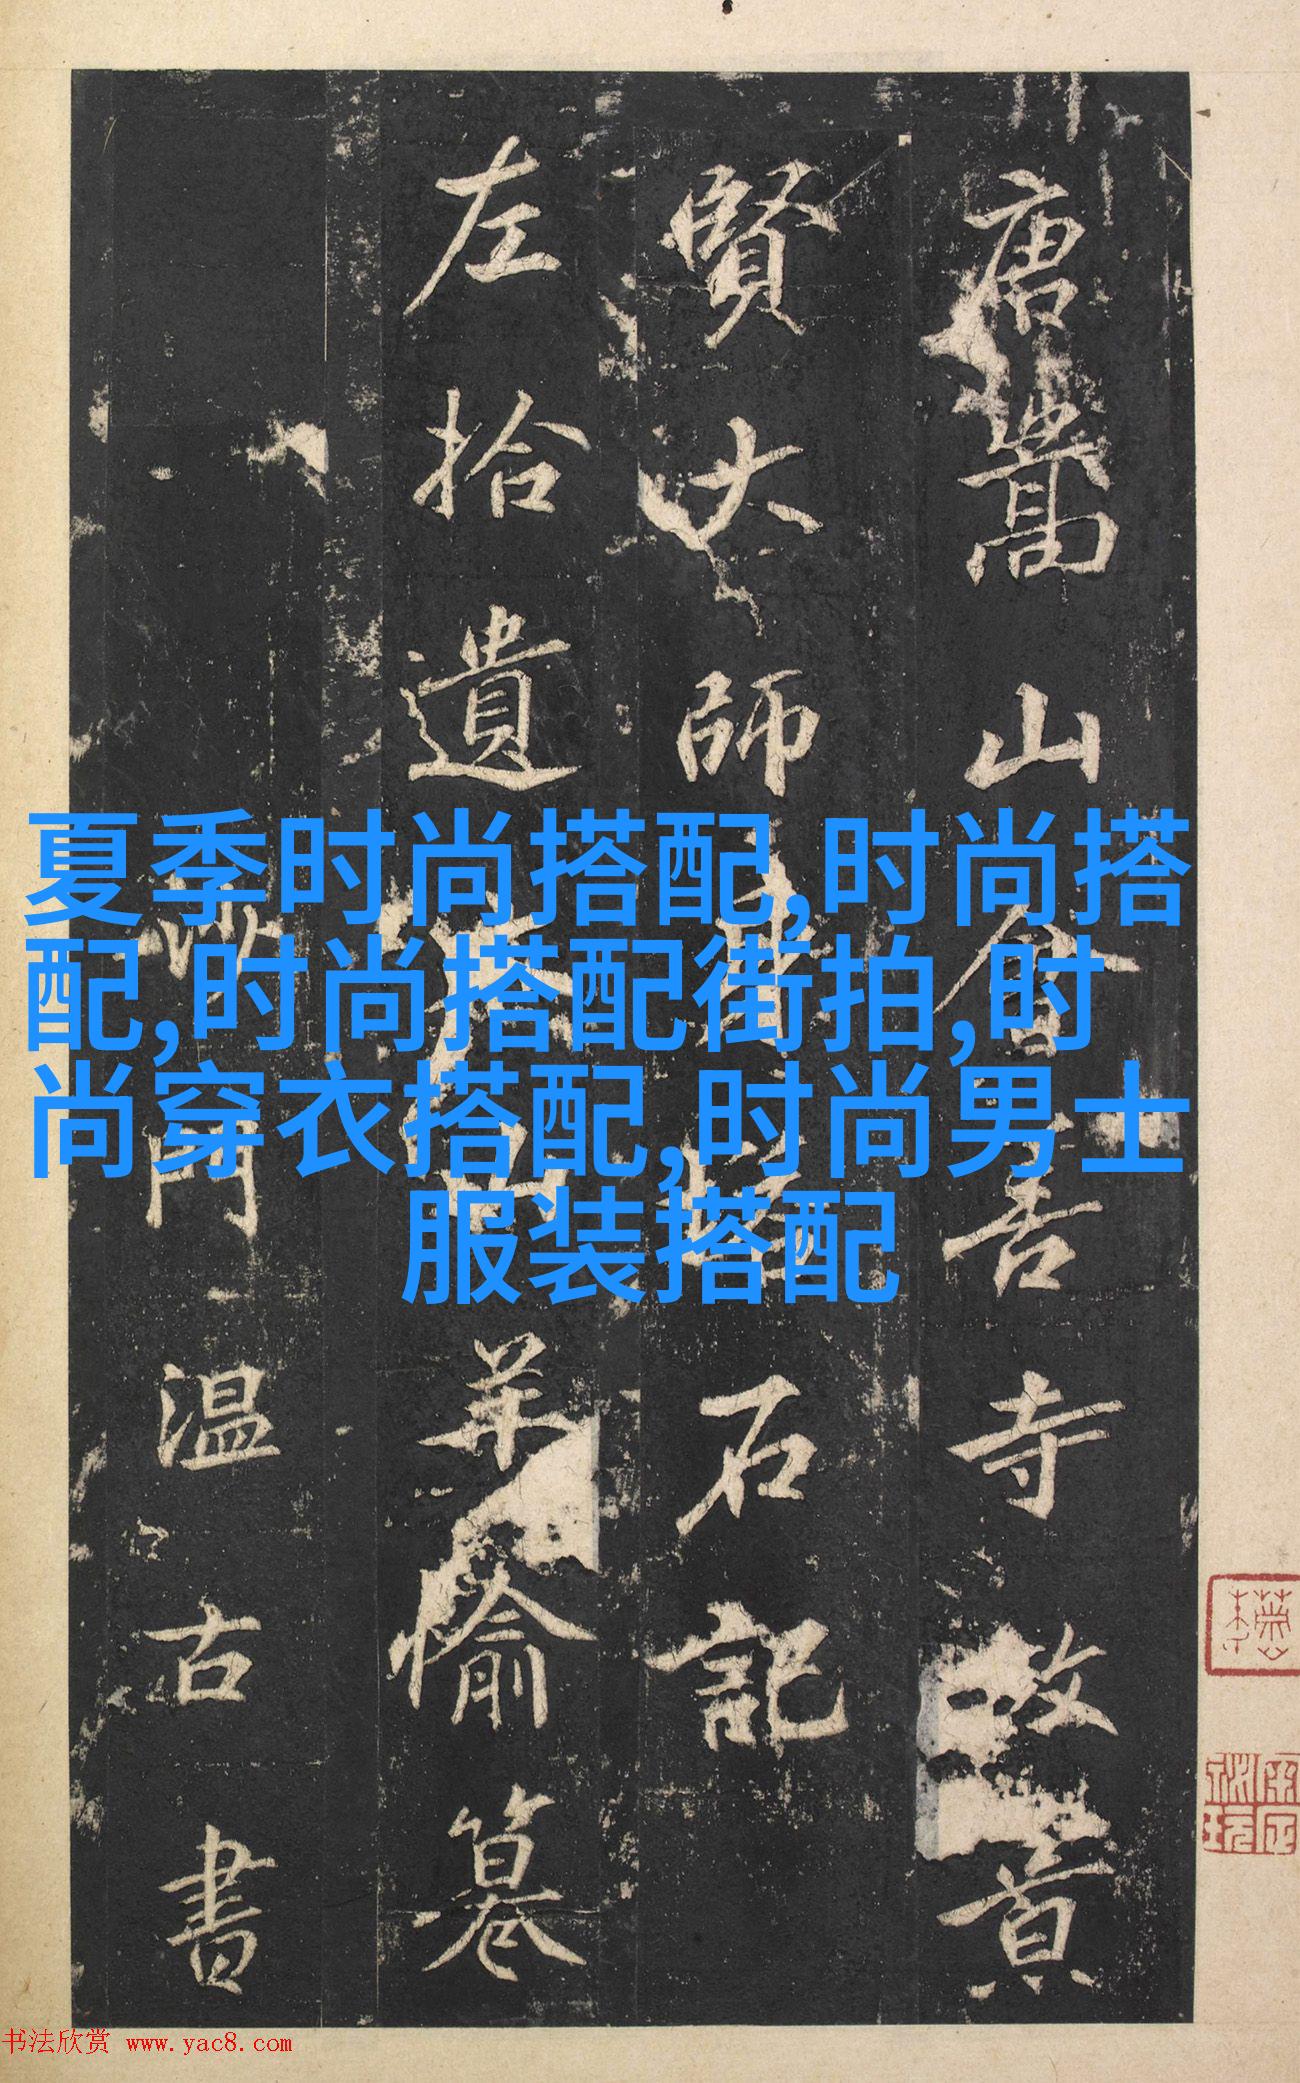 唐嵩山會善寺故景
賢大師身塔石記
左拾遺山羊愉
沙門溫古書
夏季时尚搭配,时尚搭
配,时尚搭配街拍,时
尚穿衣搭配,时尚男士
服装搭配
书法欣赏 www.yac8.com